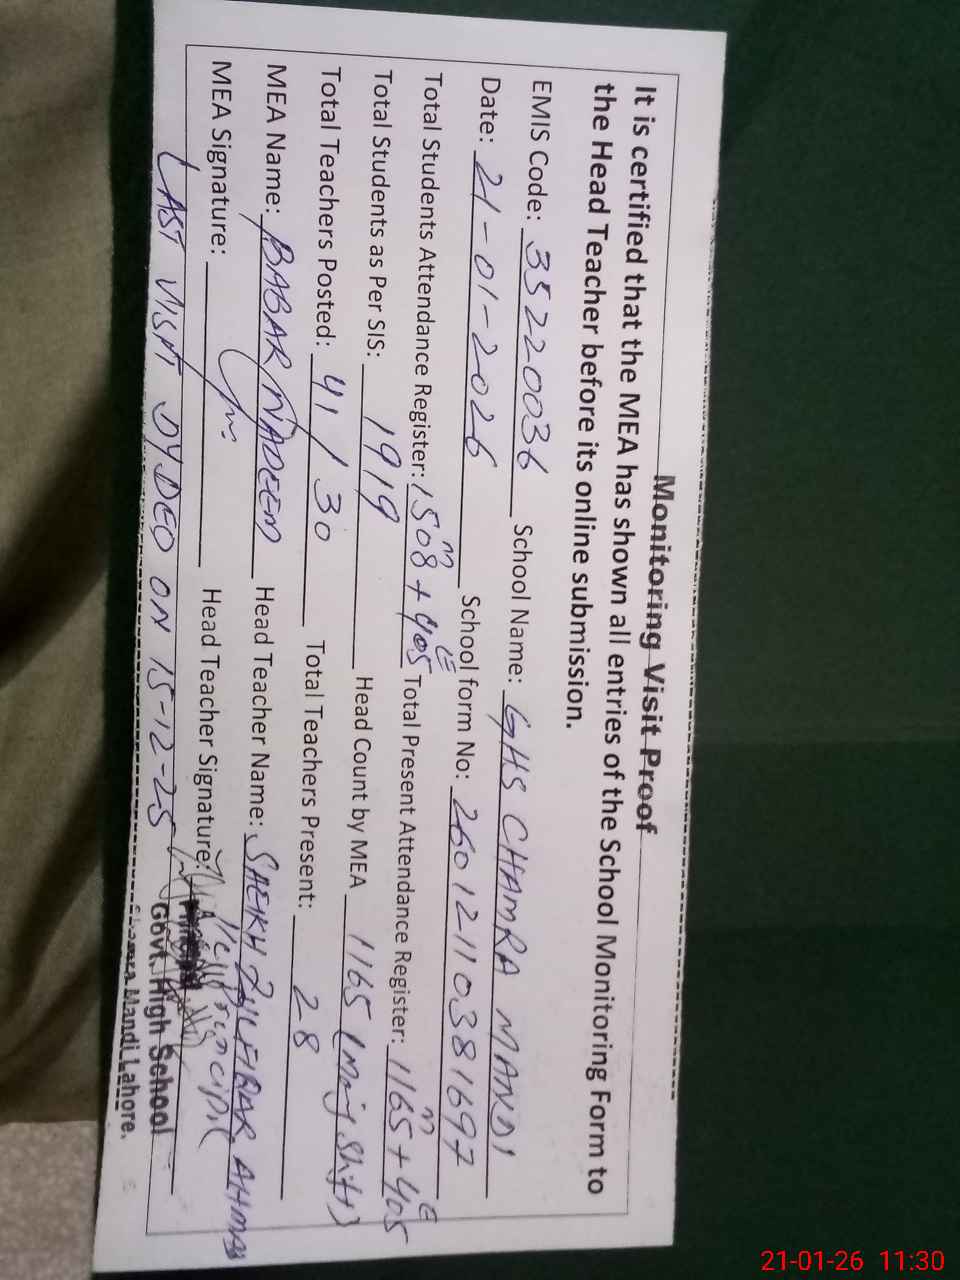 Monitoring Visit Proof
It is certified that the MEA has shown all entries of the School Monitoring Form to
the Head Teacher before its online submission.
EMIS Code: 35220036 School Name: GHS CHAMRA MANDI
Date: 21-01-2026 School form No: 26012110381697
Total Students Attendance Register: 1508 M + 405 E Total Present Attendance Register: 1165 M + 405 E
Total Students as Per SIS: 1919 Head Count by MEA 1165 (Mng Shift)
Total Teachers Posted: 41/30 Total Teachers Present: 28
MEA Name: BABAR NADEEM Head Teacher Name: SAEIKH ZULFIQAR AHMAD
MEA Signature: Head Teacher Signature:
Principal
LAST VISIT DYDEO ON 15-12-25
Govt. High School
Chamra Mandi Lahore.
21-01-26 11:30